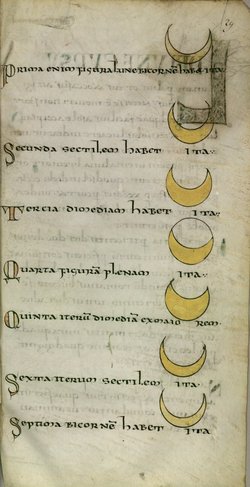 29
Prima enim figura lune bicornē habet ita
Secunda sectilem habet ita
Tercia dimediam habet ita
Quarta figurā plenam ita
Quinta iterū dimediā ex maio rem
Sexta iterum sectilem ita
Septima bicornē habet ita